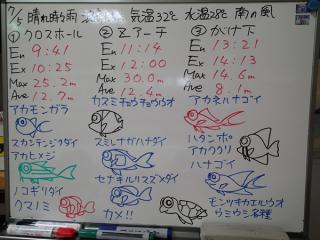 7/5 晴れ時々雨 気温32℃ 水温28℃ 南の風
① クロスホール
En 9:41
Ex 10:25
Max 25.2m
Ave 12.7m
アカモンガラ
スカシテンジクダイ
アカヒメジ
ノコギリダイ
クマノミ
② Zアーチ
En 11:14
Ex 12:00
Max 30.0m
Ave 12.4m
カスミチョウチョウウオ
スミレナガハナダイ
セナキルリスズメダイ
カメ!!
③ かけ下
En 13:21
Ex 14:13
Max 14.6m
Ave 8.1m
アカネハナゴイ
ハタンポ
アカククリ
ハナゴイ
モンツキカエルウオ
ウミウシ各種